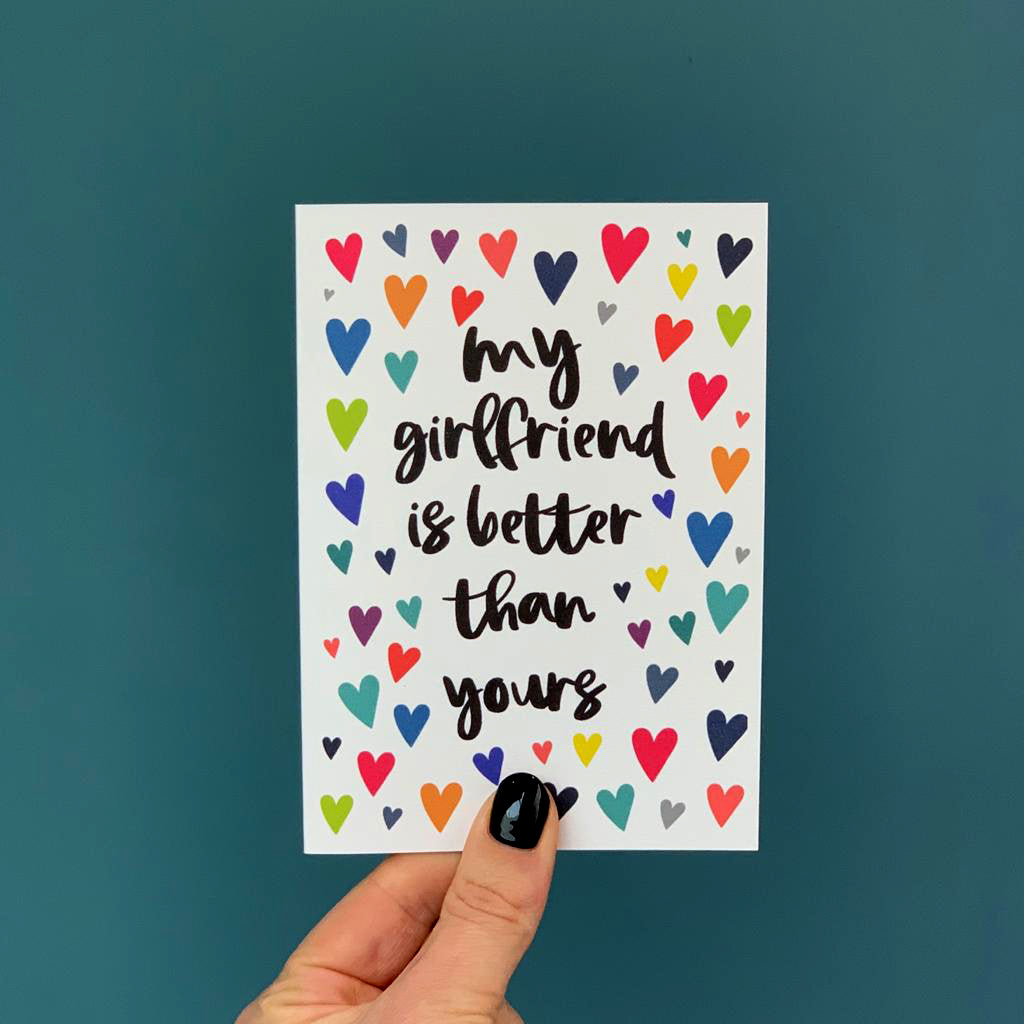 my
girlfriend
is better
than
yours